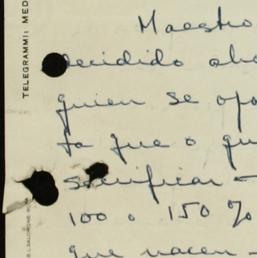 TELEGRAMMI: MED
Maestro
decidido
quien se opo
ta que o qu
sacrificar -
100 o 150 %
que nacen -